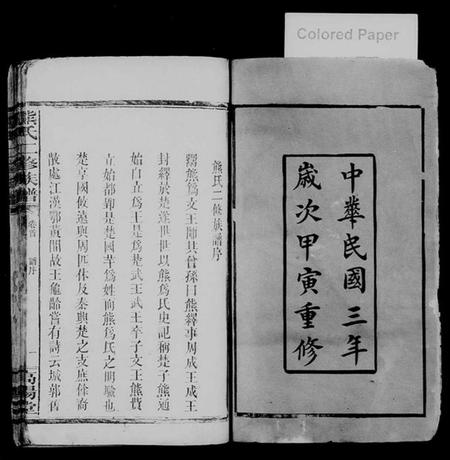 Colored Paper
中華民國三年
歲次甲寅重修
熊氏二修族譜序
鬻熊爲文王師其曾孫曰熊繹事周成王成王
封繹於楚遂世世以熊爲氏史記稱楚子熊通
始自立爲王是爲楚武王武王卒子文王熊貲
立始都郢是楚國芈爲姓而熊爲氏之明驗也
楚享國攸遠與周匹休及秦興楚之支庶徐裔
散處江漢鄂黃間故王龜齡嘗有詩云城郭舊
熊氏二修族譜
卷首
譜序
一